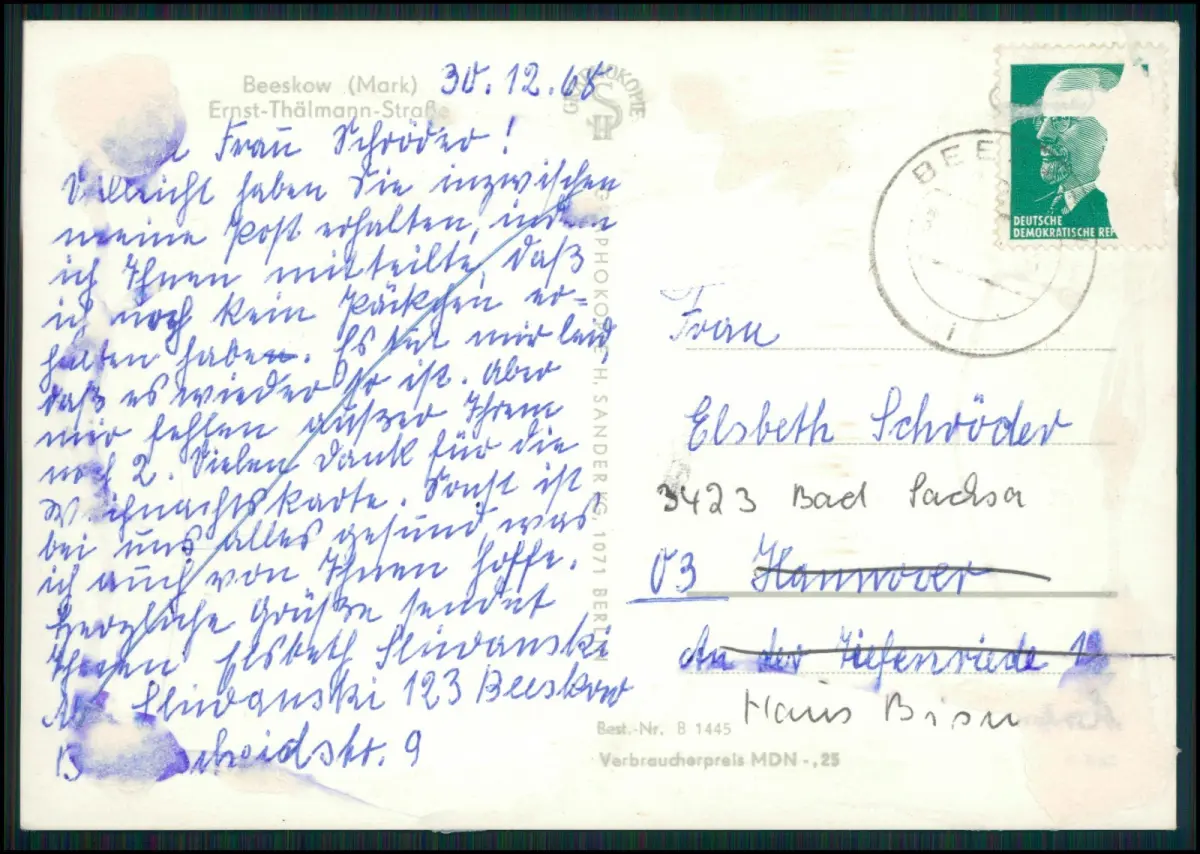 Beeskow (Mark)
Ernst-Thälmann-Straße
30.12.68
Frau Schröder!
Vielleicht haben Sie inzwischen
meine Post erhalten, indem
ich Ihnen mitteilte, daß
ich noch kein Päckchen er=
halten habe. Es tut mir leid,
daß es wieder so ist. Aber
mir fehlen außer Ihrem
noch 2. Vielen Dank für die
Weihnachtskarte. Sonst ist
bei uns alles gesund, was
ich auch von Ihnen hoffe.
Herzliche Grüße sendet
Ihnen Elsbeth Sliwanski
Sliwanski 123 Beeskow
9
H. SANDER KG, 1071 BERLIN
DEUTSCHE
DEMOKRATISCHE REP
BEE
i
Frau
Elsbeth Schröder
3423 Bad Sachsa
03 Hannover
An der Tiefenriede 12
Haus
Best.-Nr. B 1445
Verbraucherpreis MDN -,25